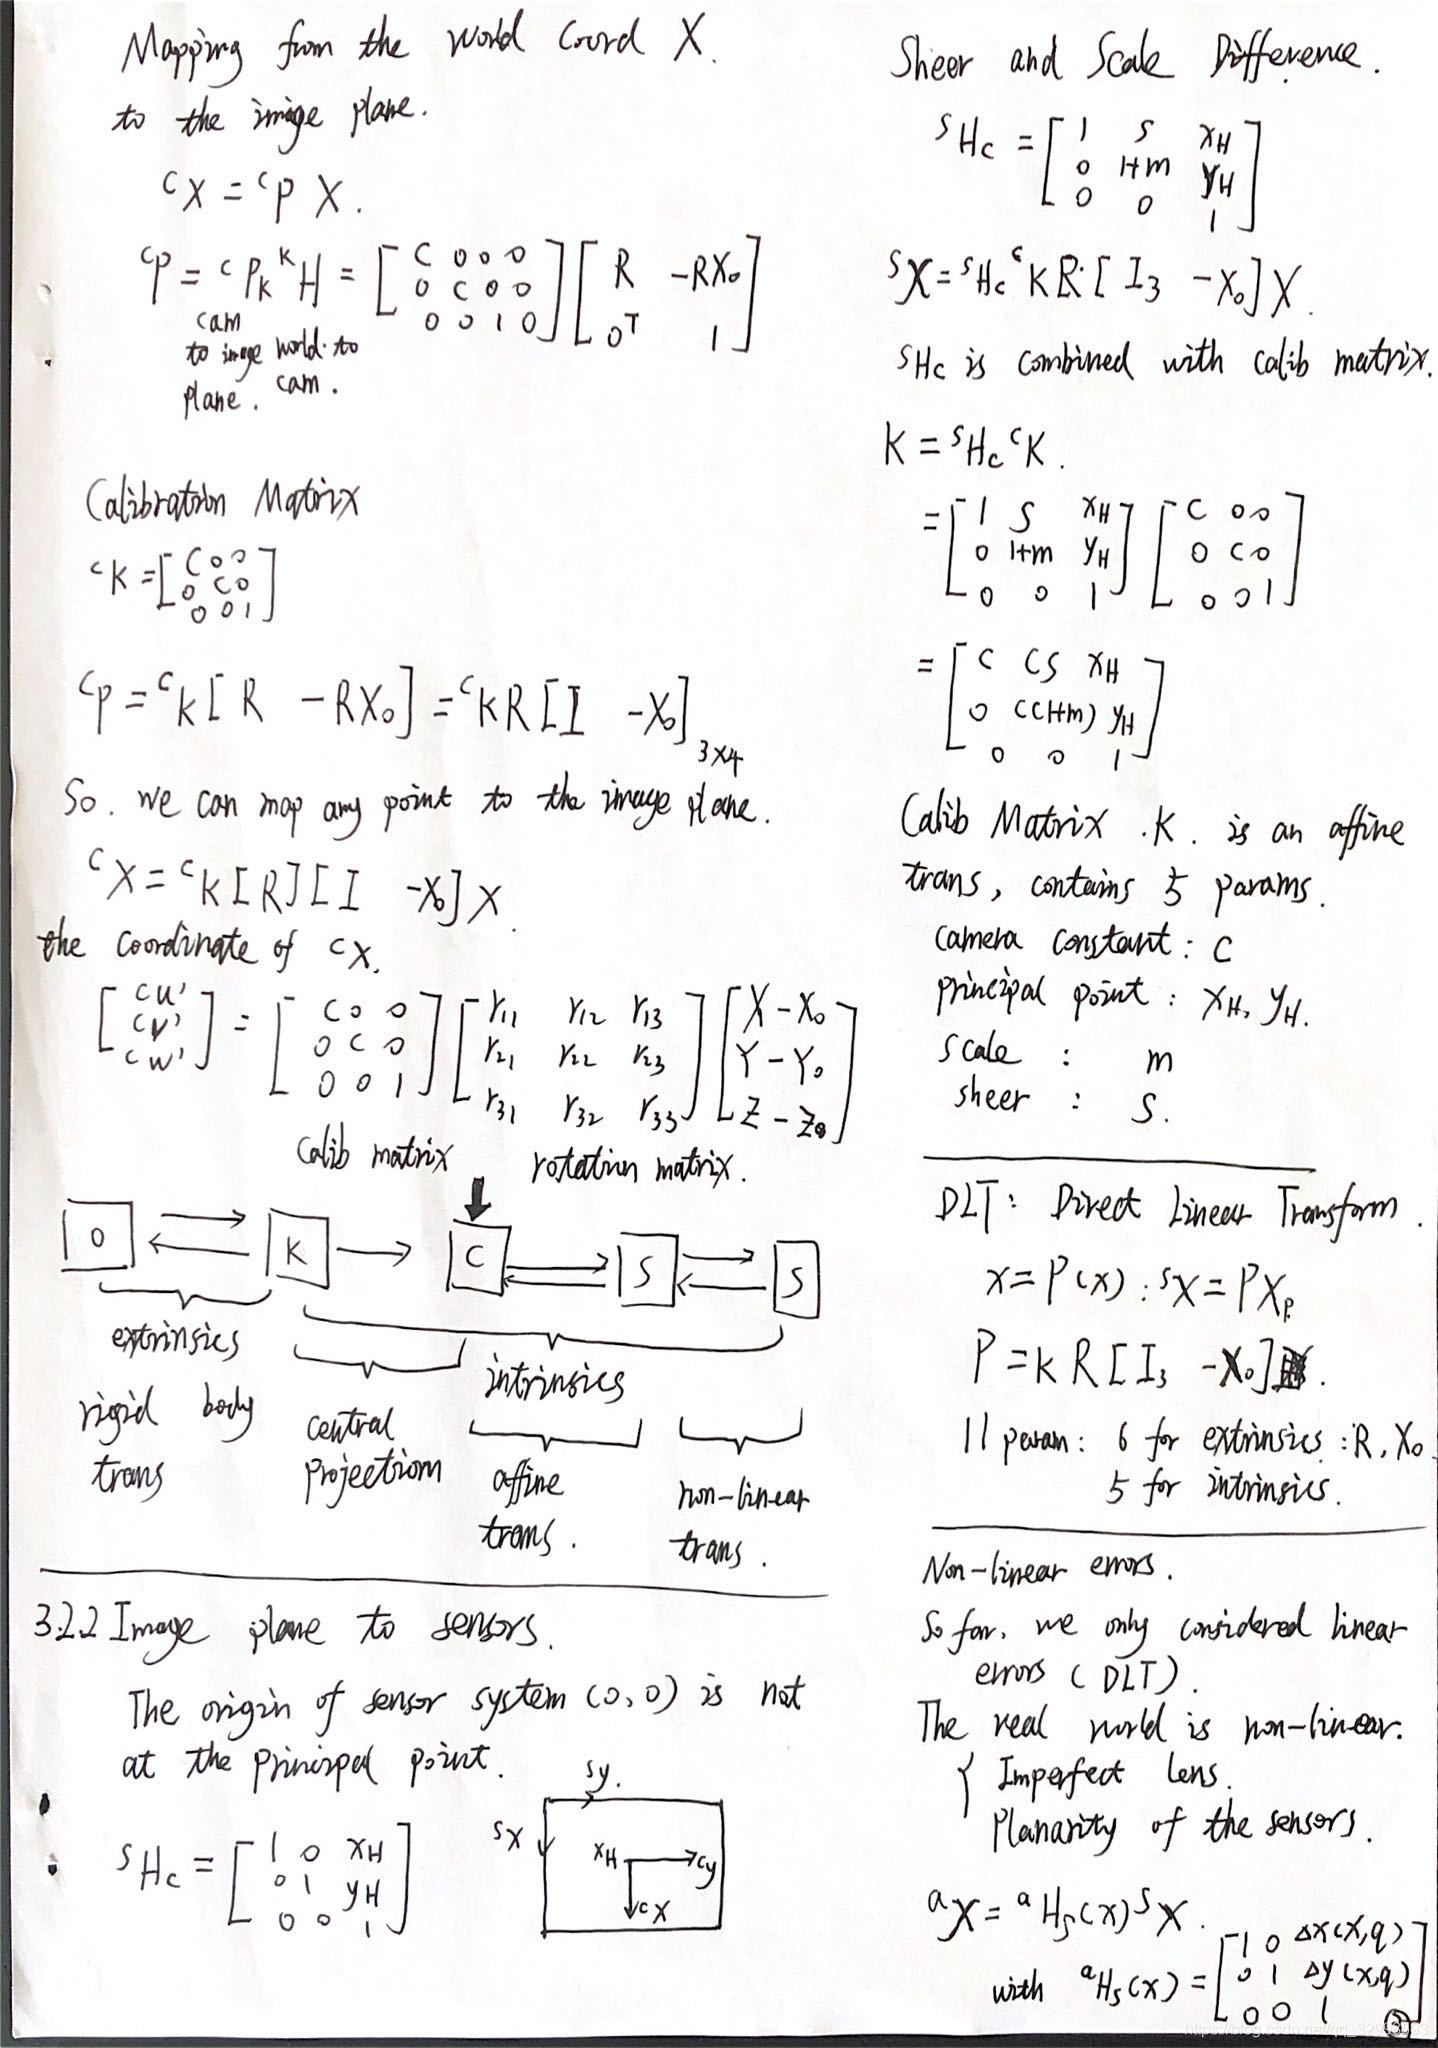 Mapping from the world Coord X.
to the image plane.
ᶜX = ᶜP X.
ᶜP = ᶜPₖ ᵏH = [C 0 0 0; 0 C 0 0; 0 0 1 0] [R -RX₀; 0ᵀ 1]
cam
to image
plane.
world to
cam.
Calibration Matrix
ᶜK = [C 0 0; 0 C 0; 0 0 1]
ᶜP = ᶜK [R -RX₀] = ᶜKR [I -X₀] 3×4
So. we can map any point to the image plane.
ᶜX = ᶜK [R] [I -X₀] X
the coordinate of ᶜX.
[ᶜu'; ᶜv'; ᶜw'] = [C 0 0; 0 C 0; 0 0 1] [r₁₁ r₁₂ r₁₃; r₂₁ r₂₂ r₂₃; r₃₁ r₃₂ r₃₃] [X - X₀; Y - Y₀; Z - Z₀]
calib matrix rotation matrix.
O K C S S
extrinsics
intrinsics
rigid body
trans
central
projection
affine
trans.
non-linear
trans.
3.2.2 Image plane to sensors.
The origin of sensor system (0,0) is not
at the principal point.
ˢHc = [1 0 xH; 0 1 yH; 0 0 1]
sy.
sX
xH
cy
cX
Sheer and Scale Difference.
ˢHc = [1 s xH; 0 1+m yH; 0 0 1]
ˢX = ˢHc ᶜK R [I₃ -X₀] X.
ˢHc is combined with calib matrix.
K = ˢHc ᶜK.
= [1 S xH; 0 1+m yH; 0 0 1] [C 0 0; 0 C 0; 0 0 1]
= [C CS xH; 0 C(1+m) yH; 0 0 1]
Calib Matrix .K. is an affine
trans, contains 5 params.
camera constant : C
principal point : xH, yH.
scale : m
sheer : S.
DLT : Direct Linear Transform.
x = P(x) : ˢX = P Xp.
P = K R [I₃ -X₀] .
11 param : 6 for extrinsics : R, X₀
5 for intrinsics.
Non-linear errors.
So far, we only considered linear
errors (DLT).
The real world is non-linear.
{ Imperfect lens.
Planarity of the sensors.
ᵃX = ᵃHs(x) ˢX.
with ᵃHs(x) = [1 0 Δx(x,q); 0 1 Δy(x,q); 0 0 1]